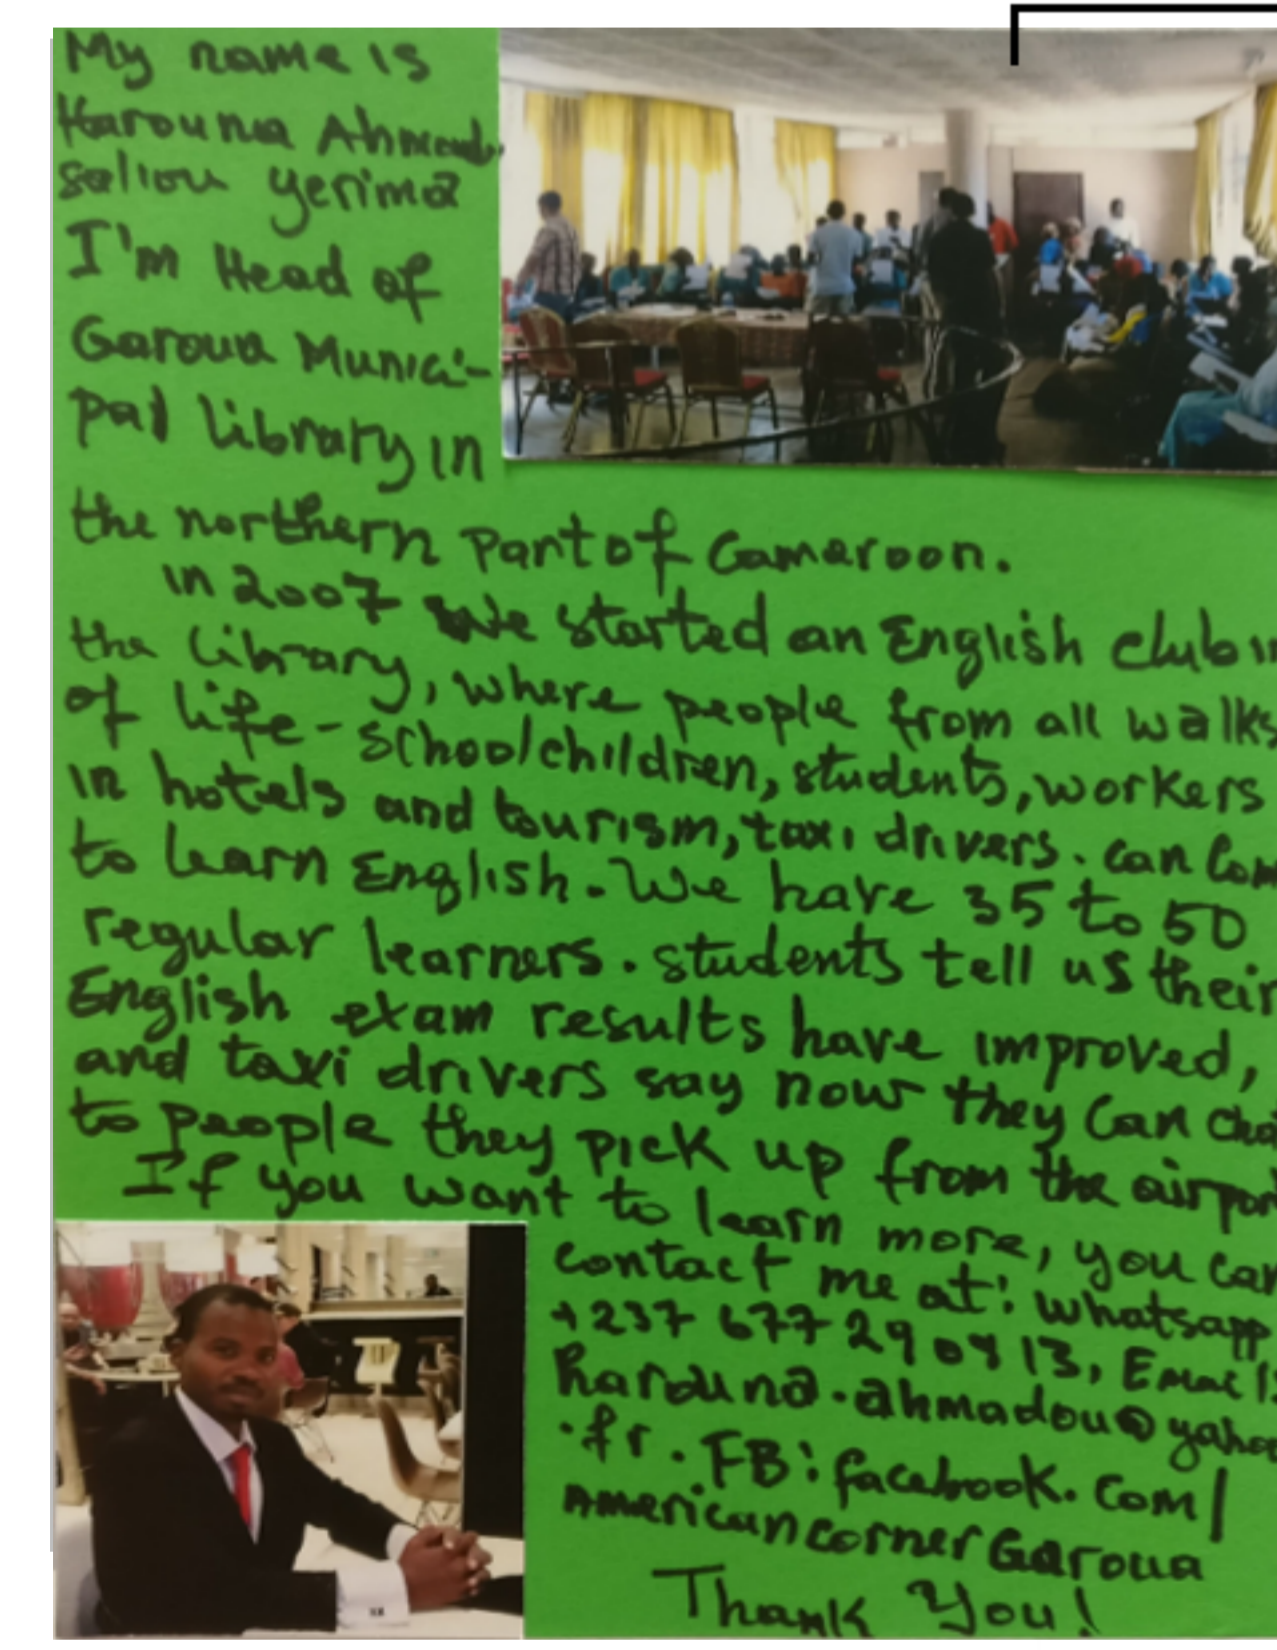 My name is
Harouna Ahmadou
saliou yerima
I'm Head of
Garoua Munici-
pal library in
the northern part of Cameroon.
in 2007 we started an English club in
the library, where people from all walks
of life - schoolchildren, students, workers
in hotels and tourism, taxi drivers. can com
to learn English. We have 35 to 50
regular learners. students tell us their
English exam results have improved,
and taxi drivers say now they can cha
to people they pick up from the airpor
If you want to learn more, you can
contact me at: whatsapp
+237 677 29 0813, Email:
harouna.ahmadou@yahoo
.fr. FB: facebook.com/
AmericanCornerGaroua
Thank You!